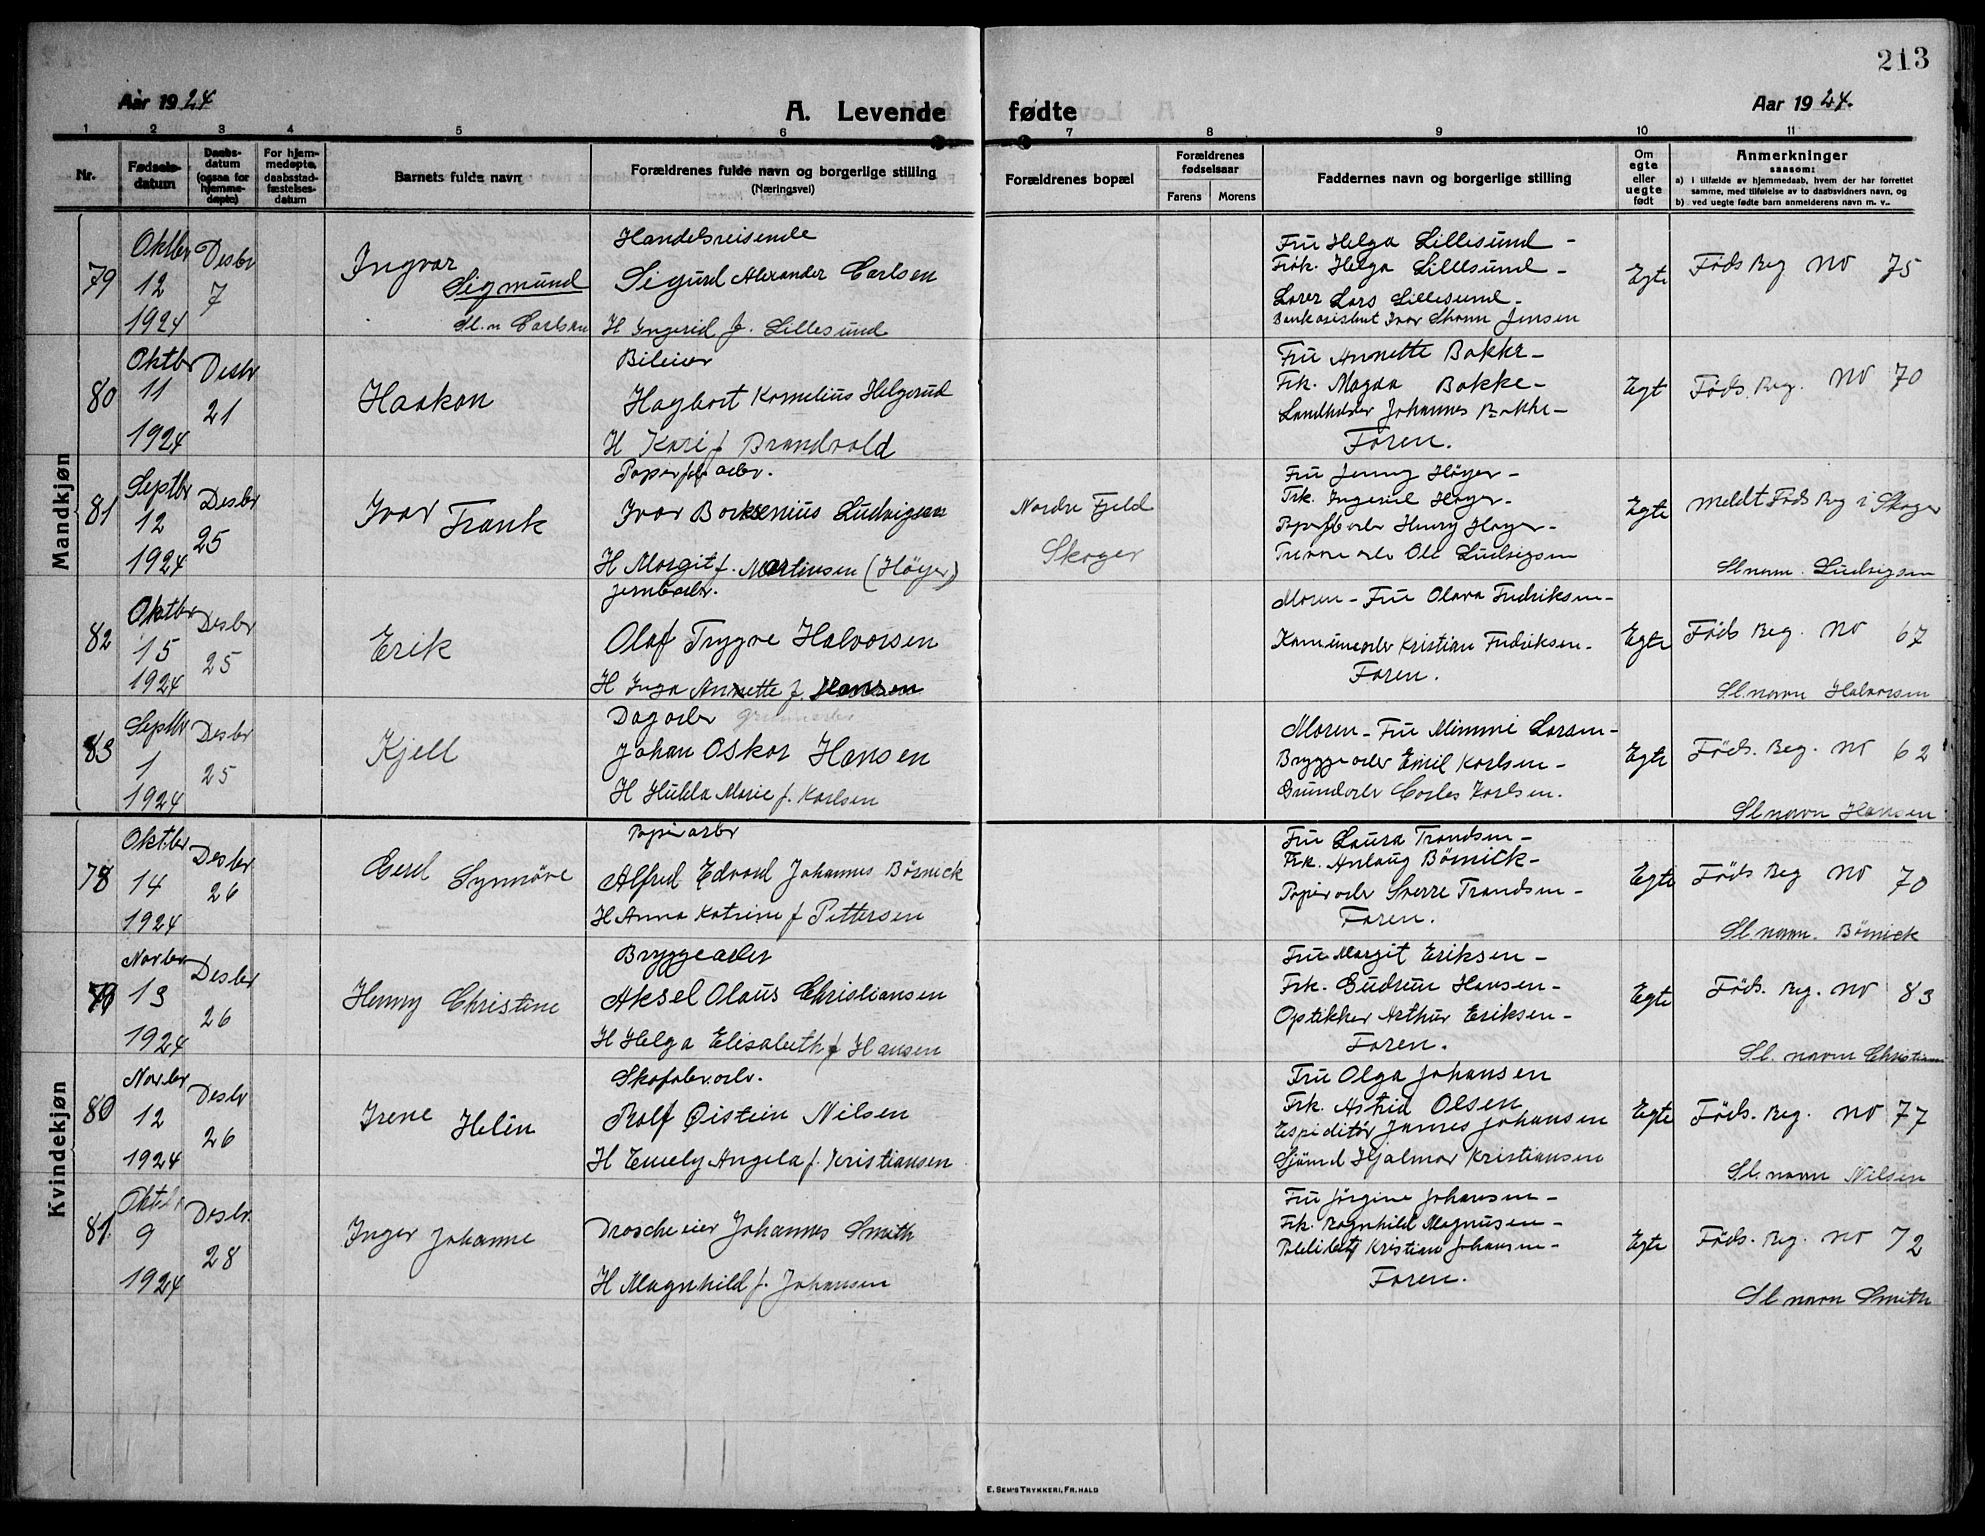 213
Aar 1924
A. Levende fødte
Aar 1924.
1 2 3 4 5 6 7 8 9 10 11
Nr.
Fødsels-
datum
Daabs-
datum
(ogsaa for
hjemme-
døpte)
For hjem-
medøpte,
daabsstad-
fæstelses-
datum
Barnets fulde navn
Forældrenes fulde navn og borgerlige stilling
(Næringsvei)
Forældrenes bopæl
Forældrenes
fødselsaar
Farens Morens
Faddernes navn og borgerlige stilling
Om
egte
eller
uegte
født
Anmerkninger
saasom:
a) i tilfælde av hjemmedaab, hvem der har forrettet
samme, med tilføielse av to daabsvidners navn, og
b) ved uegte fødte barn anmelderens navn m. v..
Mandkjøn
79
Oktbr
12
1924
Desbr
7
Ingvar
Sigmund
Sl.n Carlsen
Handelsreisende
Sigurd Alexander Carlsen
H Ingerid f. Lillesund
Fru Helga Lillesund -
Frøk. Helga Lillesund -
Lærer Lars Lillesund -
Bankassistent Ivar Jensen
Egte
Føds Reg No 75
80
Oktbr
11
1924
Desbr
21
Haakon
Bileier
Hagbart Kornelius Helgerud
H Kari f Brandvold
Fru Annette Bakke -
Frk. Magda Bakke -
Landhdler Johannes Bakke -
Faren.
Egt
Føds. Reg. No 70
81
Septbr
12
1924
Desbr
25
Ivar Frank
Papirfb arbr.
Ivar Ludvigsen
H Margit f. Martinsen (Höyer)
Nordre Fjeld
Skoger
Fru Jenny Höyer -
Frk. Ingerid Höyer -
Papirfb arbr Henry Höyer -
arbr Ole Ludvigsen
Egte
Meldt Føds Reg i Skoger
Sl navn. Ludvigsen
82
Oktbr
15
1924
Desbr
25
Erik
Jernbarbr.
Olaf Trygve Halvorsen
H Inga Annette f. Hansen
Moren - Fru Olava Fredriksen -
Kommunearbr Kristian Fredriksen -
Faren.
Egte
Føds Reg. No 67
Sl. navn Halvorsen
83
Septbr
1
1924
Desbr
25
Kjell
Dagarbr
Johan Oskar Hansen
H Hulda Marie f. Karlsen
Moren - Fru Mimmi Larsen -
Bryggearbr Emil Karlsen -
Grubearbr Karlsen.
Egte
Føds. Reg. No 62
Sl navn Hansen
Kvindekjøn
78
Oktbr
14
1924
Desbr
26
Gerd Synnöve
Papirarbr
Alfred Edvard Johannes Börnick
H Anna Katrine f Pettersen
Fru Laura Trandsen -
Frk. Anlaug Börnick -
Papirarbr Sverre Trandsen -
Faren.
Egte
Føds Reg No 70
Sl. navn. Börnick
79
Novbr
13
1924
Desbr
26
Henny Christine
Bryggearbr
Aksel Olaus Christiansen
H Helga Elisabeth f Hansen
Fru Margit Eriksen -
Frk. Gudrun Hansen -
Optikker Arthur Eriksen -
Faren.
Egte
Føds. Reg. No 83
Sl. navn Christiansen
80
Novbr
12
1924
Desbr
26
Irene Helén
Skofabr.arbr.
Rolf Øistein Nilsen
H Emely Angela f. Kristiansen
Fru Olga Johansen
Frk. Astrid Olsen
Espeditör James Johansen
Sjömd Hjalmar Kristiansen
Egte
Føds. Reg. No 77
Sl. navn Nilsen
81
Oktbr
9
1924
Desbr.
28
Inger Johanne
Droscheeier Johannes Smith
H Magnhild f. Johansen
Fru Jörgine Johansen -
Frk. Ragnhild Magnusen -
Politibetj Kristian Johansen -
Faren.
Egte
Føds. Reg. No 72
Sl. navn Smith
E. SEM'S TRYKKERI, FR. HALD